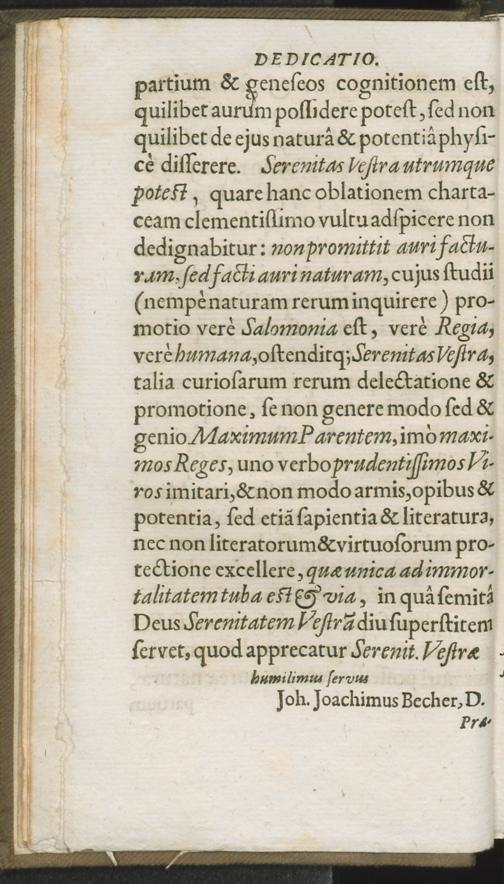 DEDICATIO.
partium & geneſeos cognitionem eſt,
quilibet aurum poſſidere poteſt, ſed non
quilibet de ejus naturâ & potentiâ phyſi-
cè diſſerere. Serenitas Veſtra utrumque
poteſt, quare hanc oblationem charta-
ceam clementiſſimo vultu adſpicere non
dedignabitur: non promittit auri factu-
ram, ſed facti auri naturam, cujus ſtudii
(nempè naturam rerum inquirere) pro-
motio verè Salomonia eſt, verè Regia,
verè humana, oſtenditq; Serenitas Veſtra,
talia curioſarum rerum delectatione &
promotione, ſe non genere modo ſed &
genio Maximum Parentem, imò maxi-
mos Reges, uno verbo prudentiſſimos Vi-
ros imitari, & non modo armis, opibus &
potentia, ſed etiā ſapientia & literatura,
nec non literatorum & virtuoſorum pro-
tectione excellere, quæ unica ad immor-
talitatem tuba eſt & via, in quâ ſemitâ
Deus Serenitatem Veſtrā diu ſuperſtitem
ſervet, quod apprecatur Serenit. Veſtræ
humilimus ſervus
Joh. Joachimus Becher, D.
Præ-